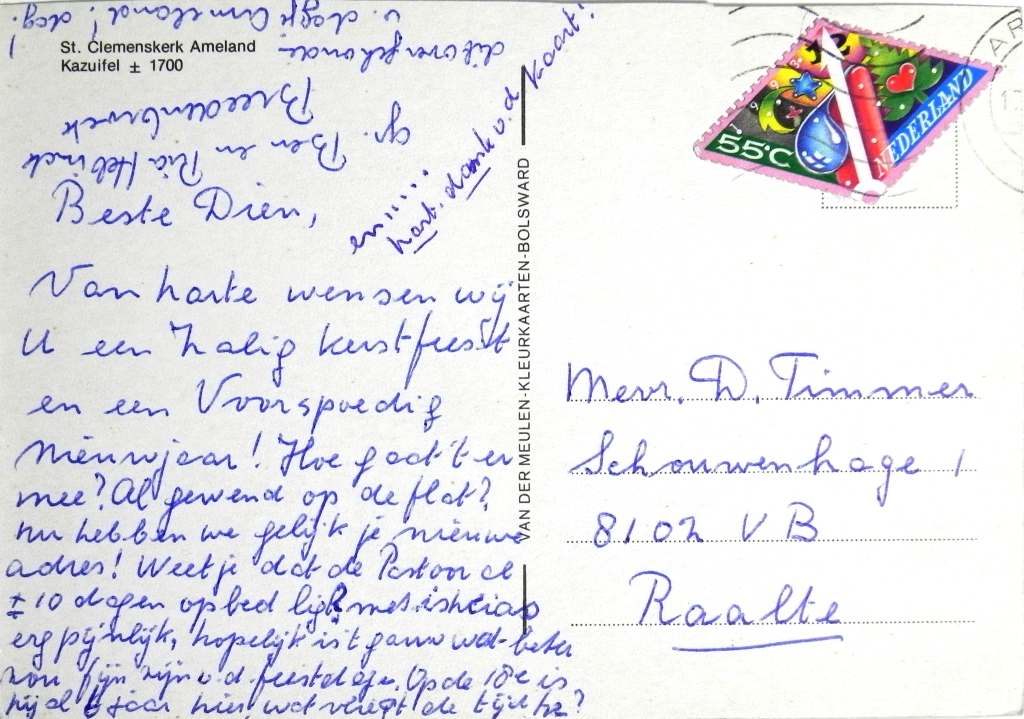 St. Clemenskerk Ameland
Kazuifel ± 1700
Beste Dien,
Van harte wensen wij
U een Zalig kerstfeest
en een Voorspoedig
nieuwjaar! Hoe gaat 't er
mee? Al gewend op de flat?
nu hebben we gelijk je nieuwe
adres! Weet je dat de Pastoor al
± 10 dagen op bed ligt? met ischias
erg pijnlijk, hopelijk is 't gauw wat beter
zou fijn zijn v.d. feestdage. Op de 18e is
hij al 6 jaar hier, wat vliegt de tijd hè?
gr. Ben en Ria
Breedenbroek
v. dagje Ameland! dag!
en.....
hart. dank v.d. kaart!
VAN DER MEULEN-KLEURKAARTEN-BOLSWARD
1993
55c
NEDERLAND
Mevr. D. Timmer
Schouwenhage 1
8102 VB
Raalte